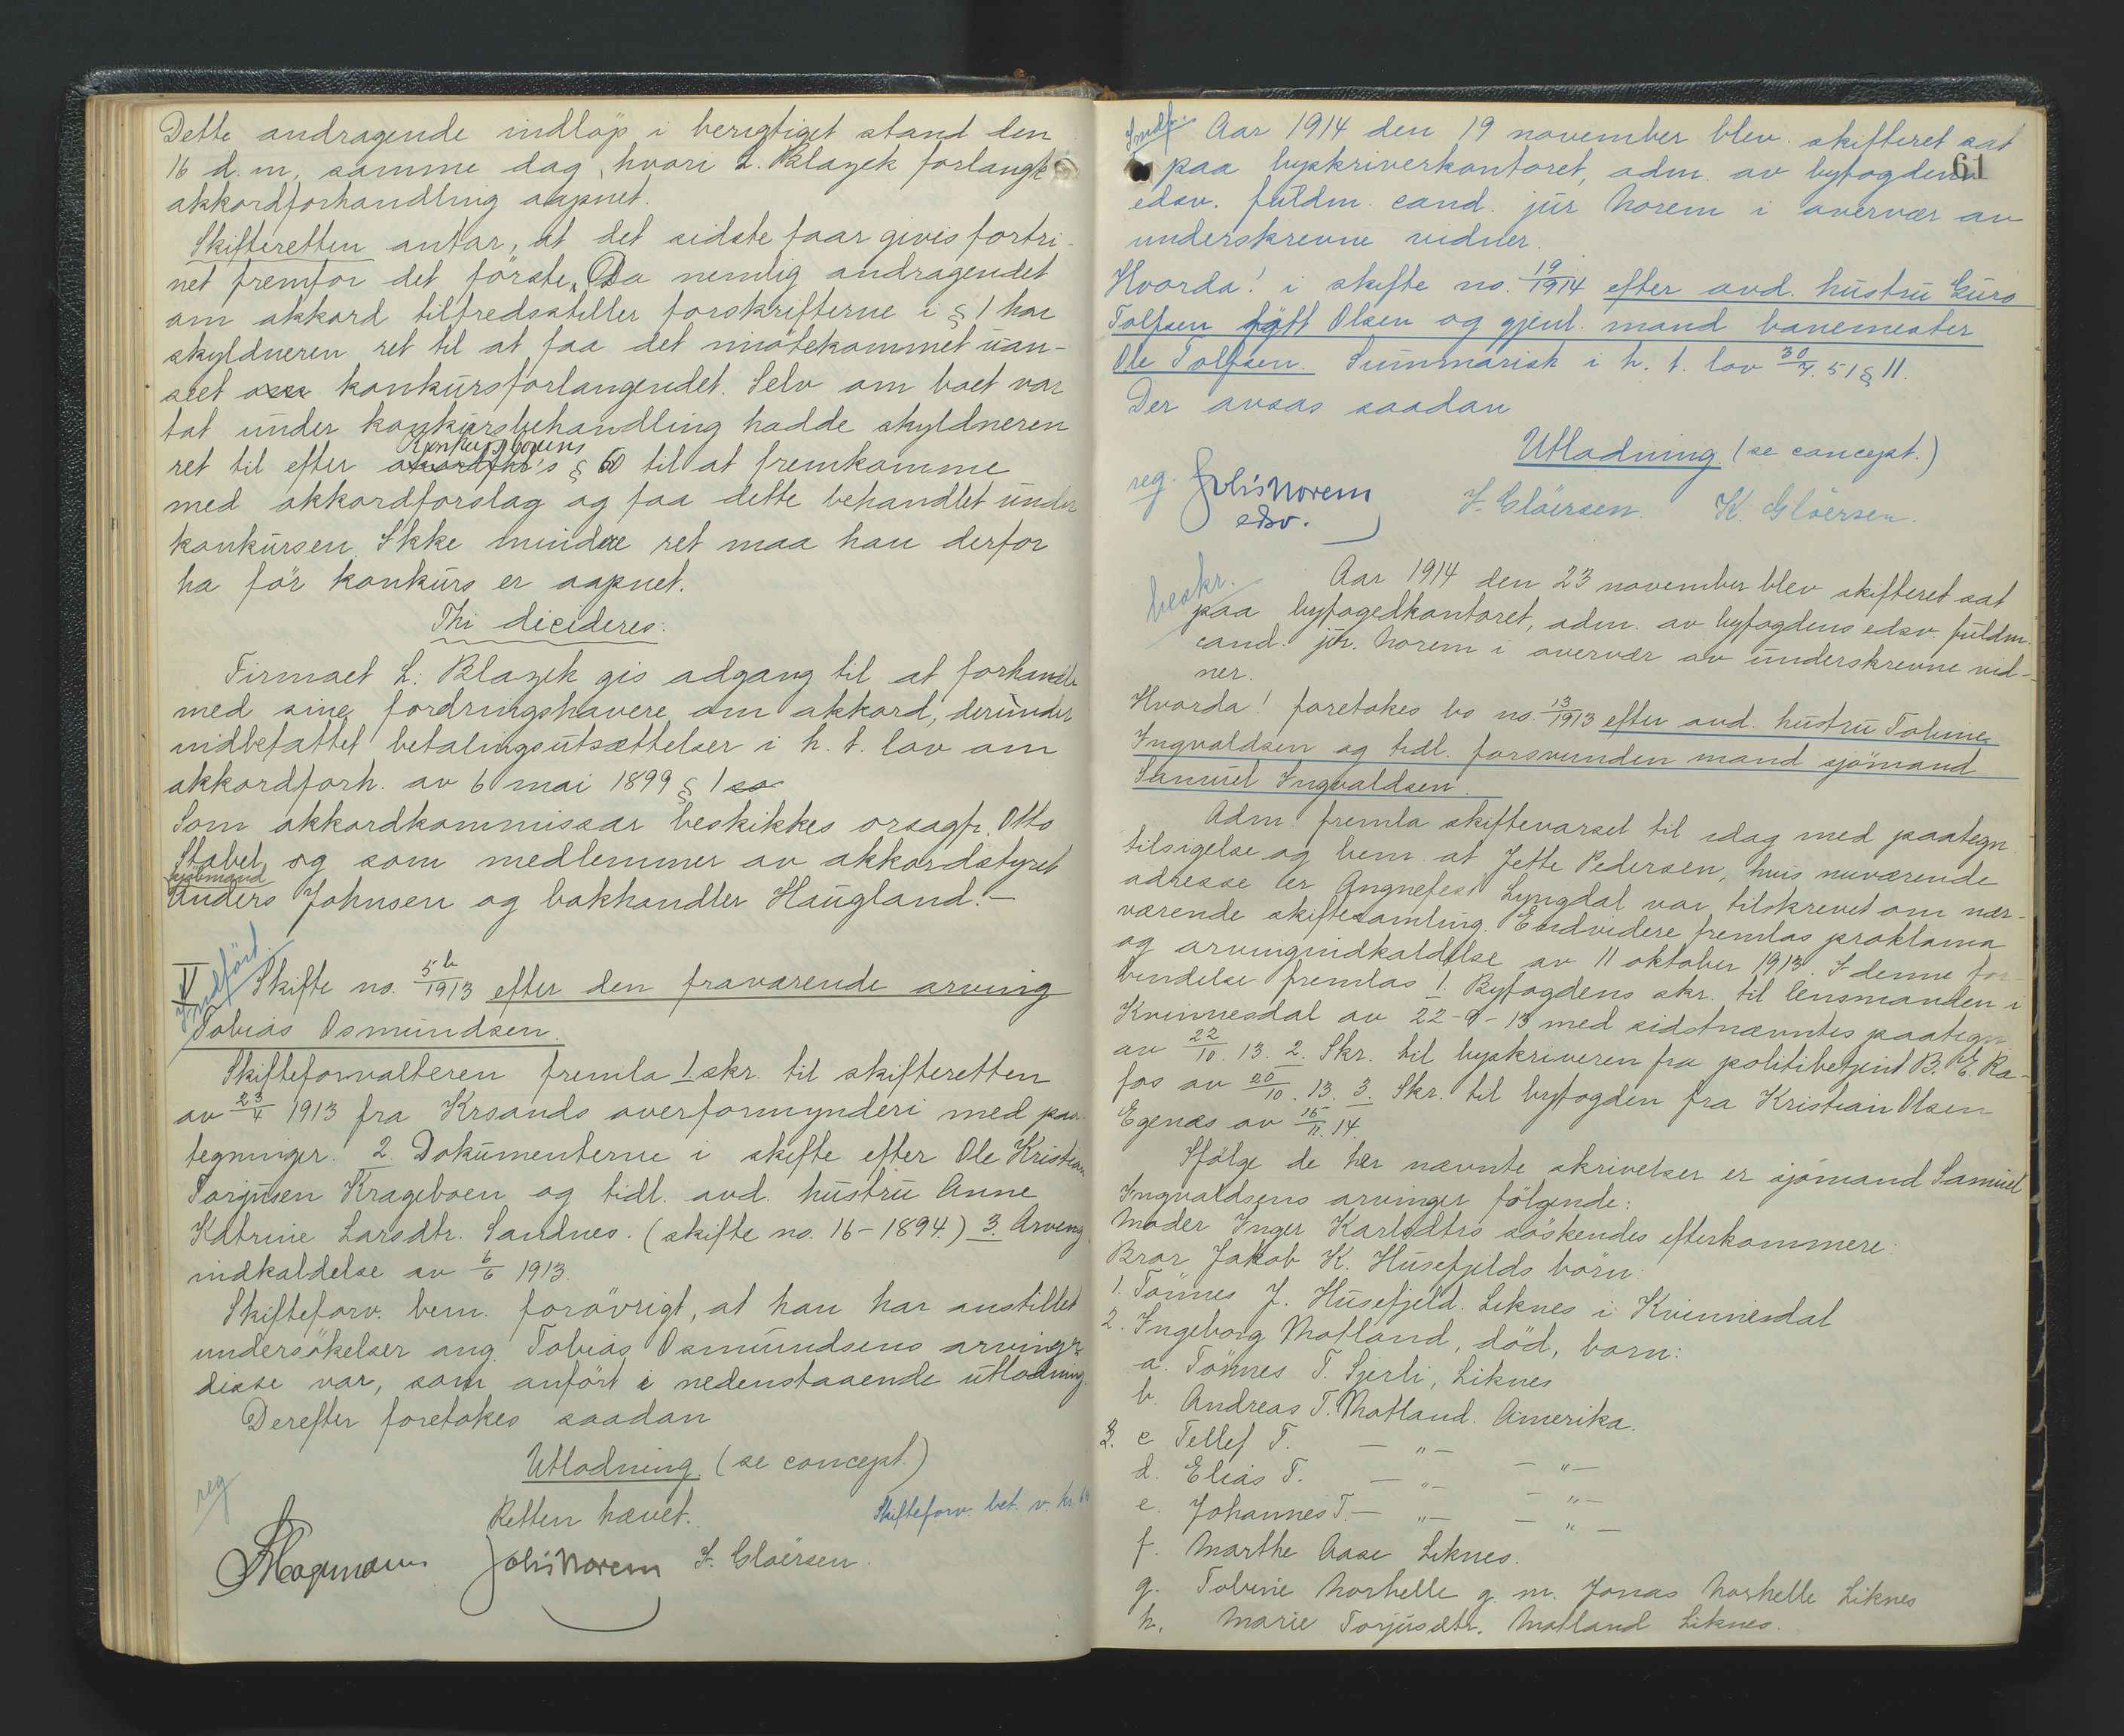 Dette andragende indløp i berigtiget stand den
16 d.m, samme dag, hvori L. Blazek forlangte
akkordforhandling aapnet.
Skifteretten antar, at det sidste faar givis fortri-
net fremfor det förste. Da nemlig andragendet
om akkord tilfredsstiller forskrifterne i § 1 har
skyldneren ret til at faa det imötekommet uan-
seet konkursforlangendet. Selv om boet var
tat under konkursbehandling hadde skyldneren
ret til efter Konkurslovens § 60 til at fremkomme
med akkordforslag og faa dette behandlet under
konkursen. Ikke mindre ret maa han derfor
ha för konkurs er aapnet.
Thi decideres:
Firmaet L. Blazek gis adgang til at forhandle
med sine fordringshavere om akkord, derunder
indbefattet betalingsutsættelser i h. t. lov om
akkordforh. av 6 mai 1899 § 1
Som akkordkommissær beskikkes orsagf. Otto
Stabel og som medlemmer av akkordstyret
kjöbmand
Anders Johnsen og bokhandler Haugland.-
Indført.
V Skifte no. 5b/1913 efter den fraværende arving
Tobias Osmundsen.
Skifteforvalteren fremla 1. skr. til skifteretten
av 23/4 1913 fra Krsands overformynderi med paa-
tegninger. 2. Dokumenterne i skifte efter Ole Kristian
Torjusen Krageboen og tidl. avd. hustru Anne
Katrine Larsdtr. Sandnes. (skifte no. 16-1894.) 3. Arving-
indkaldelse av 6/6 1913.
Skifteforv. bem. forövrigt, at han har anstillet
undersökelser ang. Tobias Osmundsens arvinger,
disse var, som anfört i nedenstaaende utlodning.
Derefter foretokes saadan
Utlodning. (se concept.)
reg
Retten hævet. Skifteforv. bet. v. kr.
Johs Norem I. Glöersen.
61
Indf. Aar 1914 den 19 november blev skifteret sat
paa byskriverkontoret, adm. av byfogdens
edsv. fuldm. cand. jur Norem i overvær av
underskrevne vidner.
Hvorda! i skifte no. 19/1914 efter avd. hustru Guro
Tolfsen født Olsen og gjenl. mand banemester
Ole Tolfsen. Summarisk i h. t. lov 30/7. 51 § 11.
Der avsas saadan
Utlodning (se concept.)
reg. Johs Norem I. Glöersen. K. Glöersen.
edsv.
beskr. Aar 1914 den 23 november blev skifteret sat
paa byfogedkontoret, adm. av byfogdens edsv. fuldm.
cand. jur. Norem i overvær av underskrevne vid-
ner.
Hvorda! foretokes bo no. 13/1913 efter avd. hustru Tobine
Ingvaldsen og tidl. forsvunden mand sjömand
Samuel Ingvaldsen.
Adm. fremla skiftevarsel til idag med paategn.
tilsigelse og bem. at Jette Pedersen, hvis nuværende
adresse er Angnefest Lyngdal var tilskrevet om nær-
værende skiftesamling. Endvidere fremlas proklama
og arvingindkaldelse av 11 oktober 1913. I denne for-
bindelse fremlas 1. Byfogdens skr. til lensmanden i
Kvinnesdal av 22-9-13 med sidstnævntes paategn.
av 22/10. 13. 2. Skr. til byskriveren fra politibetjent B. E. Ra-
fos av 20/10. 13. 3. Skr. til byfogden fra Kristian Olsen
Egenæs av 15/11. 14.
Ifölge de her nævnte skrivelser er sjömand Samuel
Ingvaldsens arvinger fölgende:
Moder Inger Karlsdtrs söskendes efterkommere:
Bror Jakob K. Husefjelds börn:
1. Tönnes J. Husefjeld. Liknes i Kvinnesdal
2. Ingeborg Motland, död, barn:
a. Tönnes T. Sjerli, Liknes
b. Andreas T. Motland. Amerika.
c Tellef T. — „ — — „ —
d. Elias T. — „ — — „ —
e. Johannes T. — „ — — „ —
f. Marthe Aase Liknes.
g. Tobine Norhelle g. m. Jonas Norhelle Liknes
h. Marie Torjusdtr. Motland Liknes.